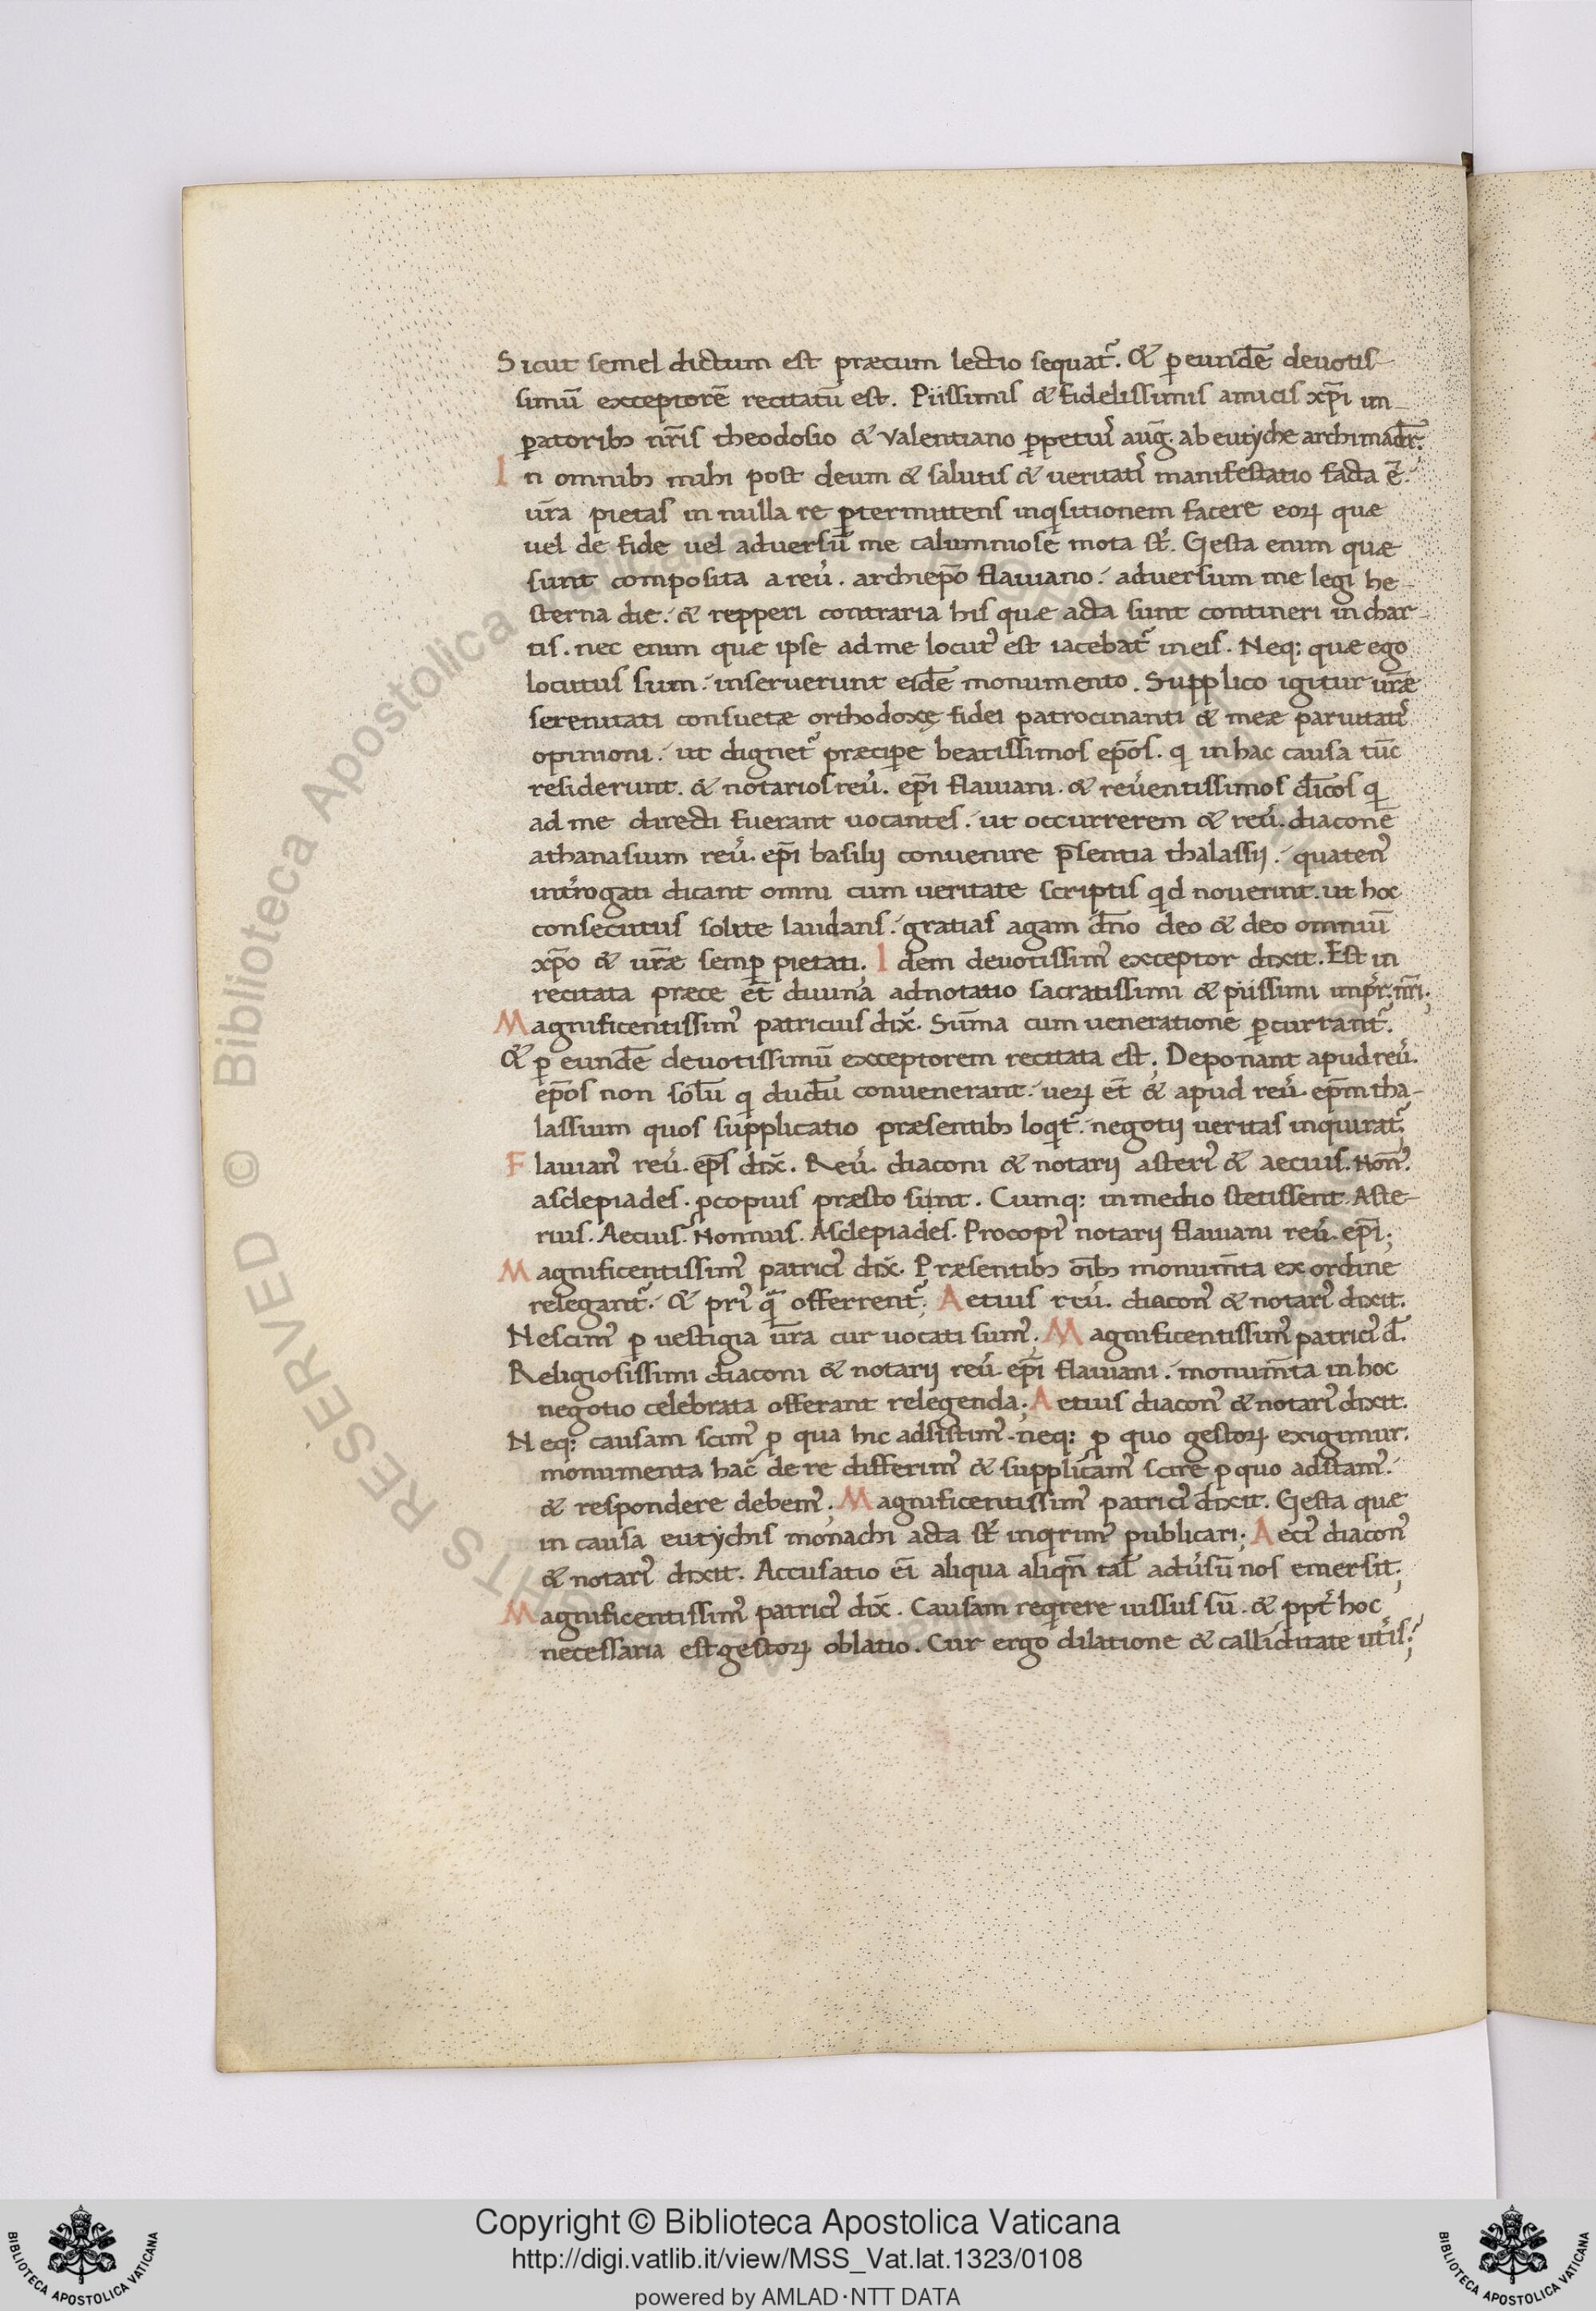 Sicut semel dictum est præcum lectio sequat᷑. & ꝑ eundē deuotis-
simū exceptorē recitatū est. Piissimis & fidelissimis amicis xp̄i im-
ꝑatorib; nr̄is theodosio & valentiano ꝑpetuis aug̃. ab eutyche archimadr̄.
In omnib; mihi post deum & salutis & ueritatis manifestatio facta ē.
ur̄a pietas in nulla re p̄termittens inqisitionem facere eoꝝ quæ
uel de fide uel aduersū me calumniose mota st̄. Gesta enim quæ
sunt composita a reu᷑. archiep̄o flauiano. aduersum me legi he-
sterna die. & repperi contraria his quæ acta sunt contineri in char-
tis. nec enim que ipse ad me locut᷑ est iacebat᷑ in eis. Neq: quæ ego
locutus sum. inseruerunt eidē monumento. Supplico igitur ur̄æ
serenitati consuetæ orthodoxę fidei patrocinanti & meæ paruitatis
opinioni. ut dignet᷑ præcipe beatissimos ep̄os. q in hac causa tūc
residerunt. & notarios reu᷑. ep̄i flauiani. & reu᷑entissimos dīcos q
ad me directi fuerant uocantes. ut occurrerem & reu᷑. diaconē
athanasium reu᷑. ep̄i basilij conuenire p̄sentia thalassij. quaten᷑
int᷑rogati dicant omni cum ueritate scriptis qd nouerint. ut hoc
consecutus solite laudans. gratias agam dn̄o deo & deo omniū
xp̄o & ur̄æ semꝑ pietati; Idem deuotissim᷑ exceptor dixit. Est in
recitata præce et̄ diuina adnotatio sacratissimi & piissimi imp̄r. nr̄i;
Magnificentissim᷑ patricius dix̄. Sum̄a cum ueneratione ꝑcurrant᷑.
& ꝑ eundē deuotissimū exceptorem recitata est; Deponant apud reu᷑.
ep̄os non solū q dudū conuenerant. ueꝝ et̄ & apud reu᷑. ep̄m tha-
lassium quos supplicatio præsentib; loqit᷑. negotij ueritas inquirat᷑;
Flauian᷑ reu᷑. ep̄s dix̄. Reu᷑. diaconi & notarij asteri᷑ & aecius. Non᷑.
asclepiades. ꝓcopius præsto sunt. Cumq: in medio stetissent. Aste-
rius. Aecius. Nonnus. Asclepiades. Procopi᷑ notarij flauiani reu᷑. ep̄i;
Magnificentissim᷑ patrici᷑ dix̄. Præsentib; oīb; monum̄ta ex ordine
relegant᷑. & pri᷑ qͣ offerrent᷑; Aetius reu᷑. diacon᷑ & notari᷑ dixit.
Nescim᷑ ꝑ uestigia ur̄a cur uocati sum᷑; Magnificentissim᷑ patrici᷑ d̄.
Religiosissimi diaconi & notarij reu᷑. ep̄i flauiani. monum̄ta in hoc
negotio celebrata offerant relegenda; Aetius diacon᷑ & notari᷑ dixit.
Neq: causam scim᷑ ꝓ qua hic adsistim᷑. neq: ꝓ quo gestoꝝ exigimur.
monumenta hac de re differim᷑ & supplicam᷑ scire ꝓ quo adstam᷑.
& respondere debem᷑; Magnificentissim᷑ patrici᷑ dixit. Gesta quæ
in causa eutychis monachi acta st̄ inqrim᷑ publicari; Aeci᷑ diacon᷑
& notari᷑ dixit. Accusatio eī aliqua aliqn̄ tal̄ adu᷑sū nos emersit;
Magnificentissim᷑ patrici᷑ dix̄. Causam reqrere iussus sū. & ppt᷑ hoc
necessaria est gestoꝝ oblatio. Cur ergo dilatione & calliditate ut᷑is;
RIGHTS RESERVED © Biblioteca Apostolica Vaticana
Copyright © Biblioteca Apostolica Vaticana
http://digi.vatlib.it/view/MSS_Vat.lat.1323/0108
powered by AMLAD·NTT DATA
BIBLIOTECA APOSTOLICA VATICANA
BIBLIOTECA APOSTOLICA VATICANA